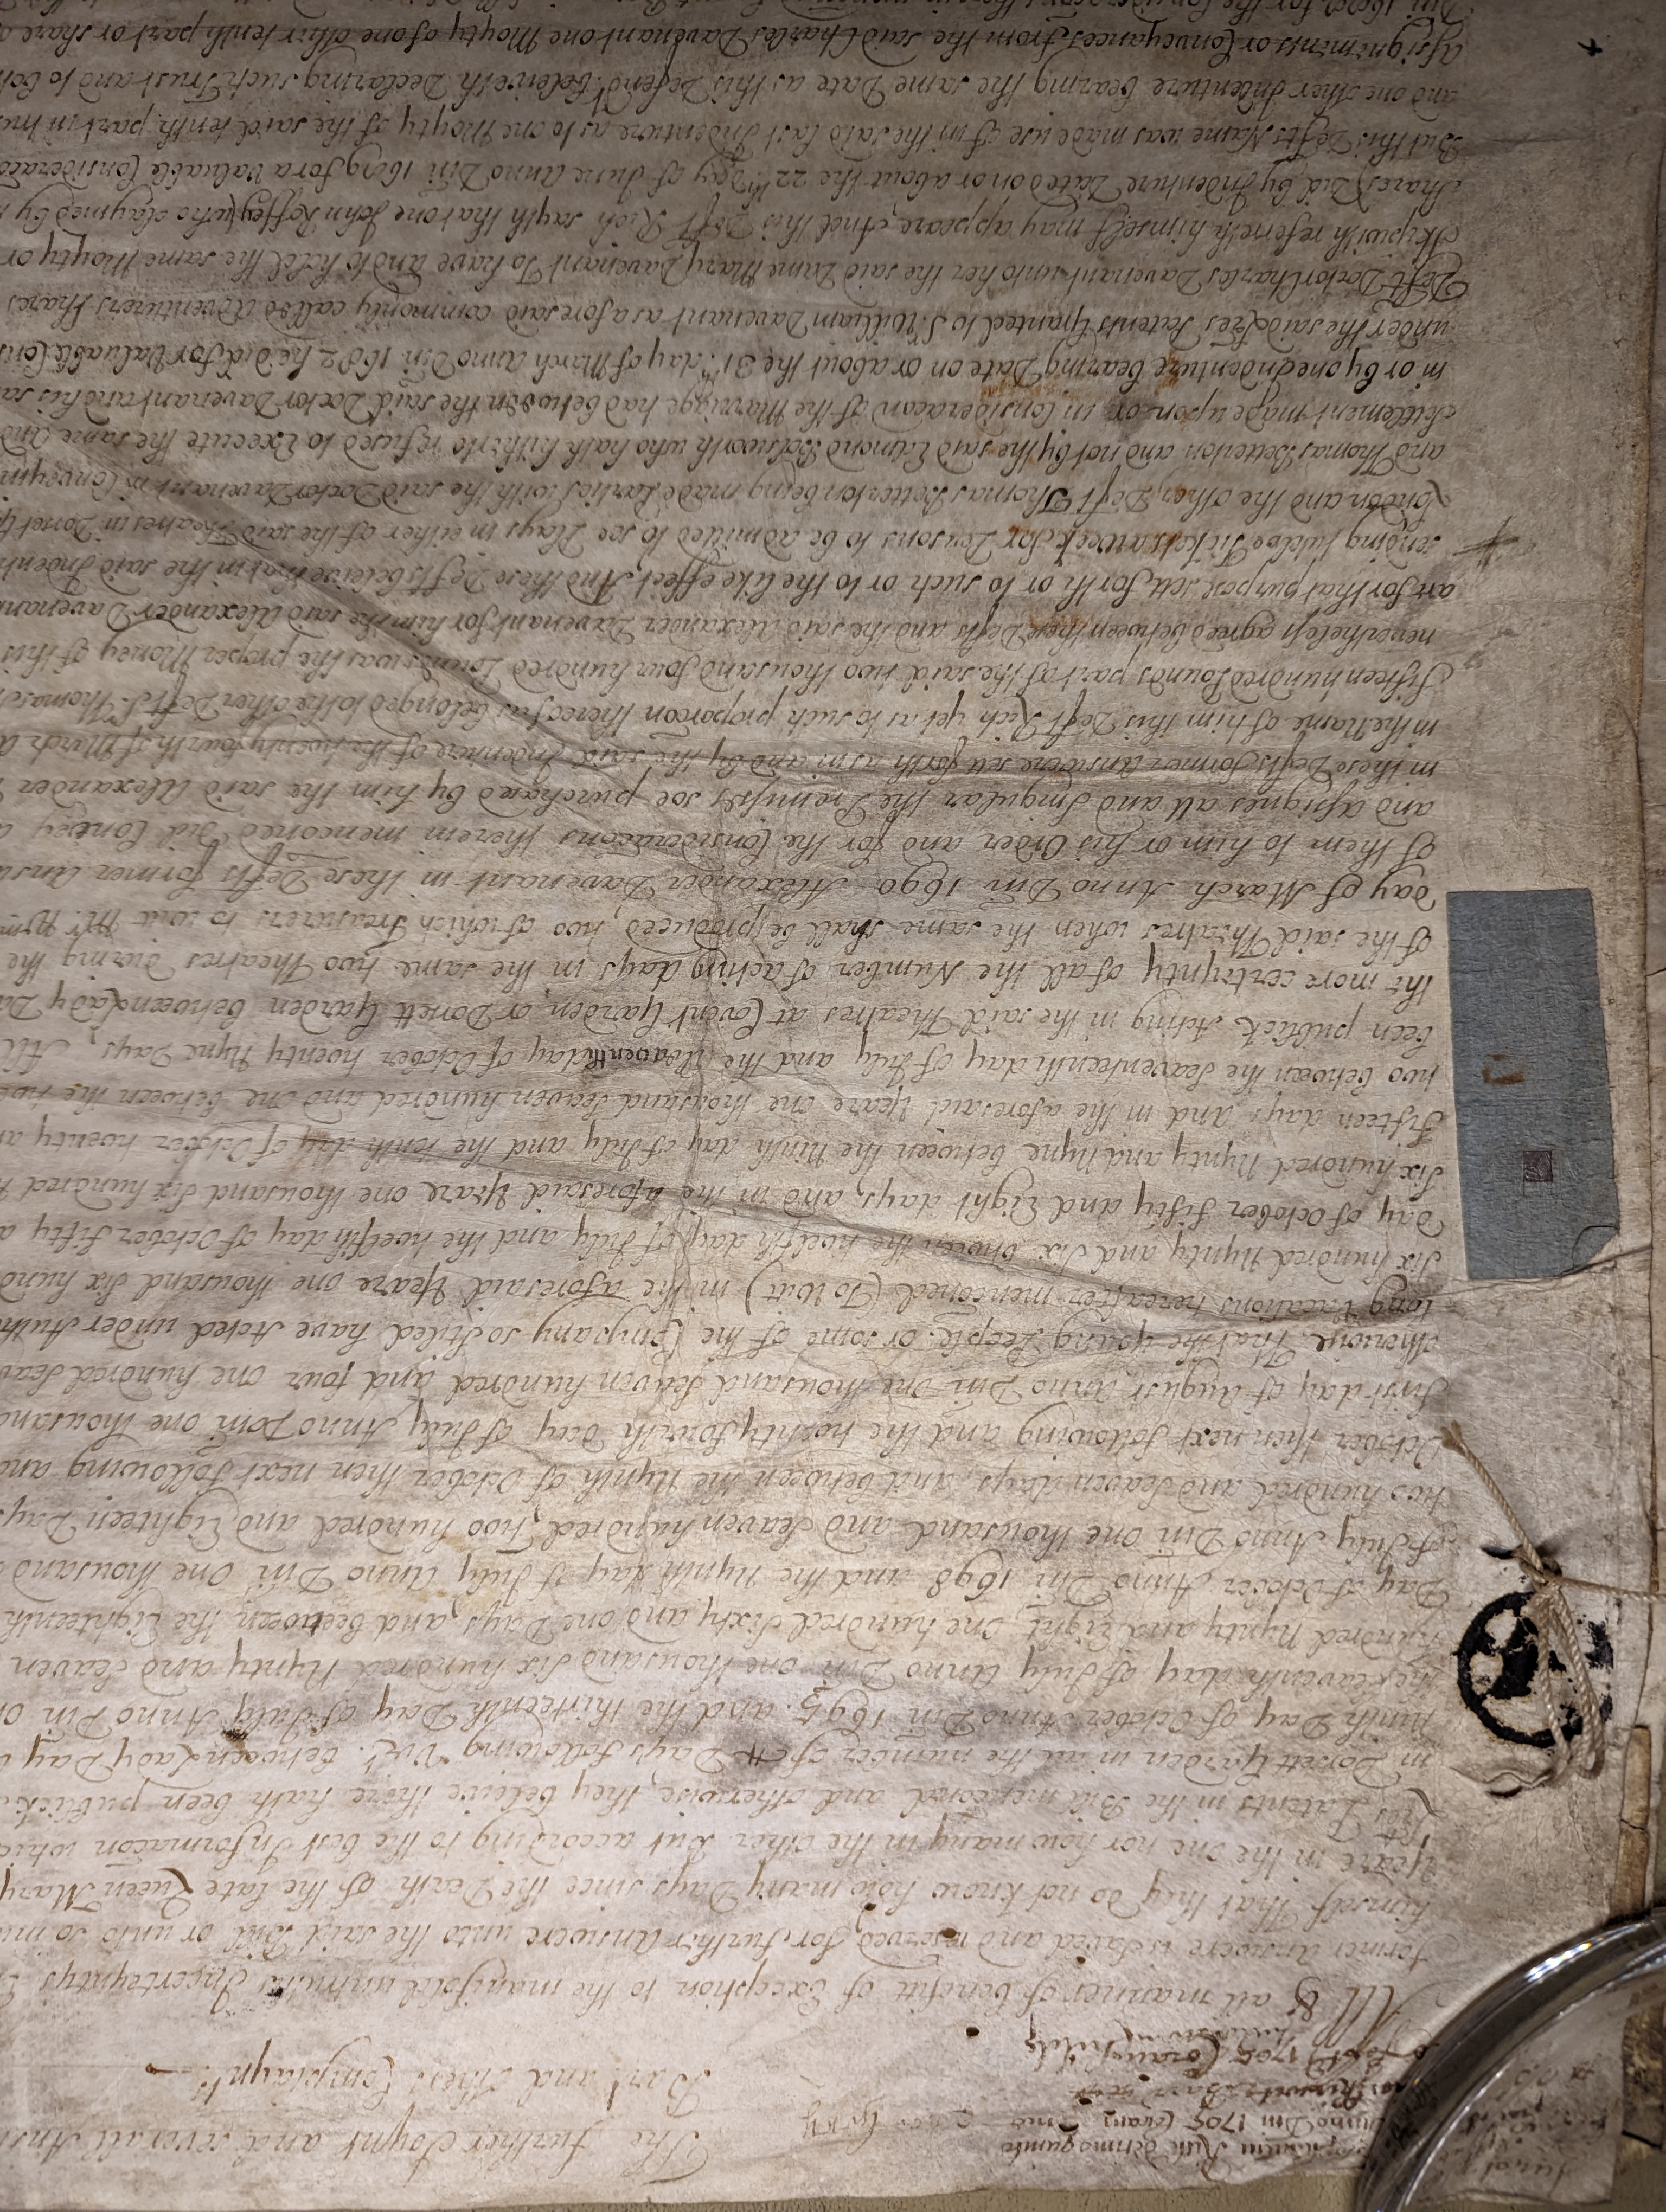 The further Joynt and severall Answ
Bart. and others Complaynts.
Anno Dni 1705 Coram
Sept. 1705 Coram
All & all manner of benefitt of Exception to the manifold untruths Incerteyntys
former Answere is saved and reserved for further Answere unto the said Bill or unto so mu
himself That they do not know how many Days since the Death of the late Queen Mary
Yeare in the one nor how many in the other But according to the best Informacon whic
Lres Patents in the Bill menconed and otherwise they beleive there hath been publick
in Dorsett Garden in all the number of Days following Vizt. between Lady Day
Ninth Day of October Anno Dni 1695. and the thirteenth Day of July Anno Dni
the Eleaventh day of July Anno Dni one thousand six hundred Nynty and Seaven
hundred Nynty and Eight One hundred Sixty and one Days, and between the Eighteenth
Day of October Anno Dni 1698 and the Nynth day of July Anno Dni One thousand
of July Anno Dni one thousand and Seaven hundred, Two hundred and Eighteen Days
two hundred and Seaven days, and between the Nynth of October then next following and
October then next following and the twenty fowrth day of July Anno Dom one thousand
first day of August Anno Dni One thousand Seaven hundred and four one hundred Seav
otherwise That the young People or some of the Company so stiled have Acted under Auth
long Vacations hereafter menconed (To Witt) in the aforesaid Yeare one thousand Six hund
Six hundred Nynty and Six between the twelfth day of July and the twelfth day of October fifty
day of October fifty and Eight days, and in the aforesaid Yeare one thousand Six hundred
Six hundred Nynty and Nyne between the Ninth day of July and the tenth day of October twenty
Fifteen days and in the aforesaid Yeare one thousand Seaven hundred and one between the
two between the Seaventeenth day of July and the Eleaventh day of October twenty Nyne Days, All
been publick Acting in the said Theatres at Covent Garden or Dorsett Garden between Lady Da
the more certeynty of all the Number of acting days in the same two Theatres during the
of the said Theatres when the same shall be produced, two of which Treasurers to witt Mr.
day of March Anno Dni 1690 Alexander Davenant in these Defts former Answ
of them to him or his Order and for the Consideracons therein menconed Did Convey
and assignes all and singular the Premisses soe purchased by him the said Alexander
in these Defts former Answere sett forth as in and by the said Indenture of the twenty fourth of March
in the Name of him this Deft Rich yet as to such proporcon thereof as belonged to the other Deft Sr. Thomas
Fifteen hundred Pounds part of the said two thousand four hundred Pounds was the proper Money of this
nevertheless agreed between these Defts and the said Alexander Davenant for him the said Alexander Davenant
are for that purpose sett forth or to such or to the like effect, And these Defts beleive that in the said Indent
sending twelve Tickets a Week for Persons to be admitted to see Plays in either of the said Theatres in Dorsett
London and the other Deft Thomas Betterton being made Parties with the said Doctor Davenant in Conveying
and Thomas Betterton and not by the said Edmond Bolsworth who hath hitherto refused to Execute the same And
Settlement made upon or in Consideracon of the Marriage had between the said Doctor Davenant and his
in or by one Indenture bearing Date on or about the 31th. day of March Anno Dni 1682 he did for Valuable Cons
under the said Lres Patents Granted to Sr. William Davenant as aforesaid commonly called Adventurers shares
Deft Doctor Charles Davenant unto her the said Dame Mary Davenant To have and to hold the same Moyty or
Skipwith referreth himself may appeare, And this Deft Rich sayth that one John Roffey (who claymed by
shares) Did by Indenture Dated on or about the 22th. day of June Anno Dni 1689 for a valuable Consideracon
But this Defts Name was made use of in the said last Indenture as to one Moyty of the said tenth part in tru
and one other Indenture bearing the same Date as this Defendt. beleiveth Declaring such Trust and to both
assignments or Conveyances from the said Charles Davenant one Moyty of one other tenth part or share